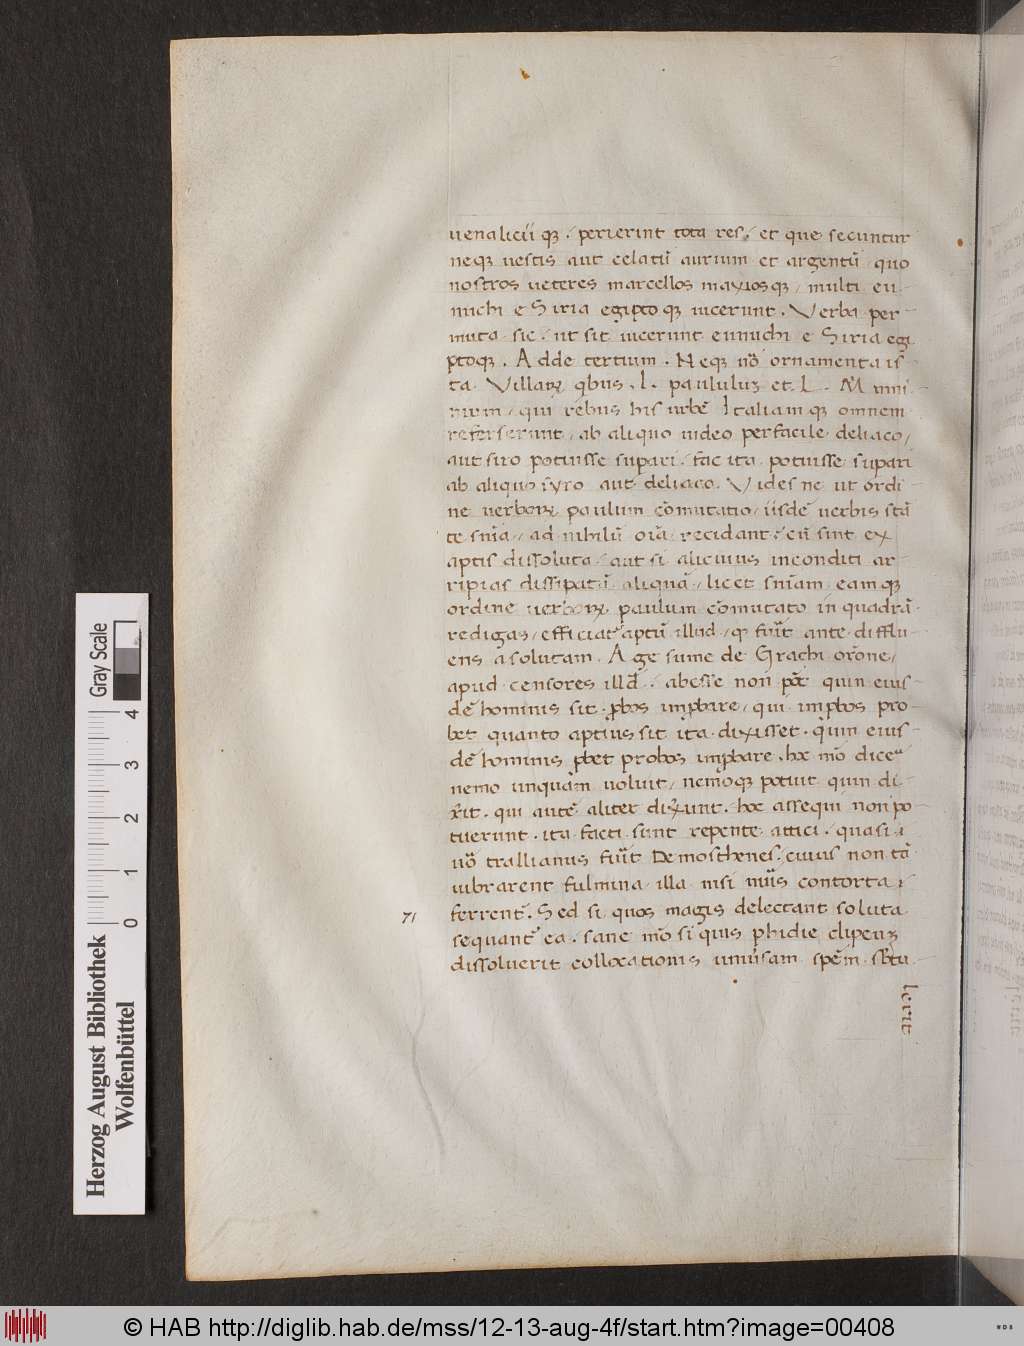 uenaliciū qȝ. perierint tota res. et que secuntur
neqȝ uestis aut celatū aurum et argentū quo
nostros ueteres marcellos maxiosqȝ, multi eu-
nuchi e Siria egiptoqȝ uicerunt. Verba per-
muta sic. ut sit uicerunt eunuchi e Siria egi
ptoqȝ. Adde tertium. Neqȝ uō ornamenta is-
ta. Villarꝝ qbus. L. paululuȝ et. L. Mummi-
nium, qui rebus his urbē Italiam qȝ omnem
referserunt, ab aliquo uideo perfacile deliaco,
aut siro potuisse supari. fac ita. potuisse supari
ab aliquo syro aut deliaco. Vides ne ut ordi-
ne uerborꝝ paulum cōmutatio, iisdē uerbis stā
te snīa, ad nihilū oīa recidant. cū sint ex
aptis dissoluta. aut si alicuius inconditi ar-
ripias dissipatū aliquā, licet snīam eamqȝ
ordine uerborꝝ paulum cōmutato in quadrā-
redigas, efficiat' aptū illud, qd fuīt ante difflu
ens a solutam. Age sume de Grachi orōne,
apud censores illd̄. abesse non pōt quin eius-
dē hominis sit. ꝓbos imꝓbare, qui imꝓbos pro-
bet quanto aptius sit ita dixisset. quin eius
dē hominis ꝓbet probos imꝓbare. hoc mō dice'
nemo unquàm uoluit, nemoqȝ potuit quin di-
xīt. qui autē aliter dixunt. hoc assequi non po-
tuerunt. ita facti sunt repente attici. quasi i
uō trallianus fuīt Demosthenes. cuius non tā
uibrarent fulmina illa nisi nūis contorta i
ferrent'. Sed si quos magis delectant soluta
71
sequant' ea. sane mō si quis phidie clipeuȝ
dissoluerit collocationis uniūsam spēm sb'tu-
lerit
Herzog August Bibliothek
Wolfenbüttel
0 1 2 3 4
Gray Scale
© HAB http://diglib.hab.de/mss/12-13-aug-4f/start.htm?image=00408